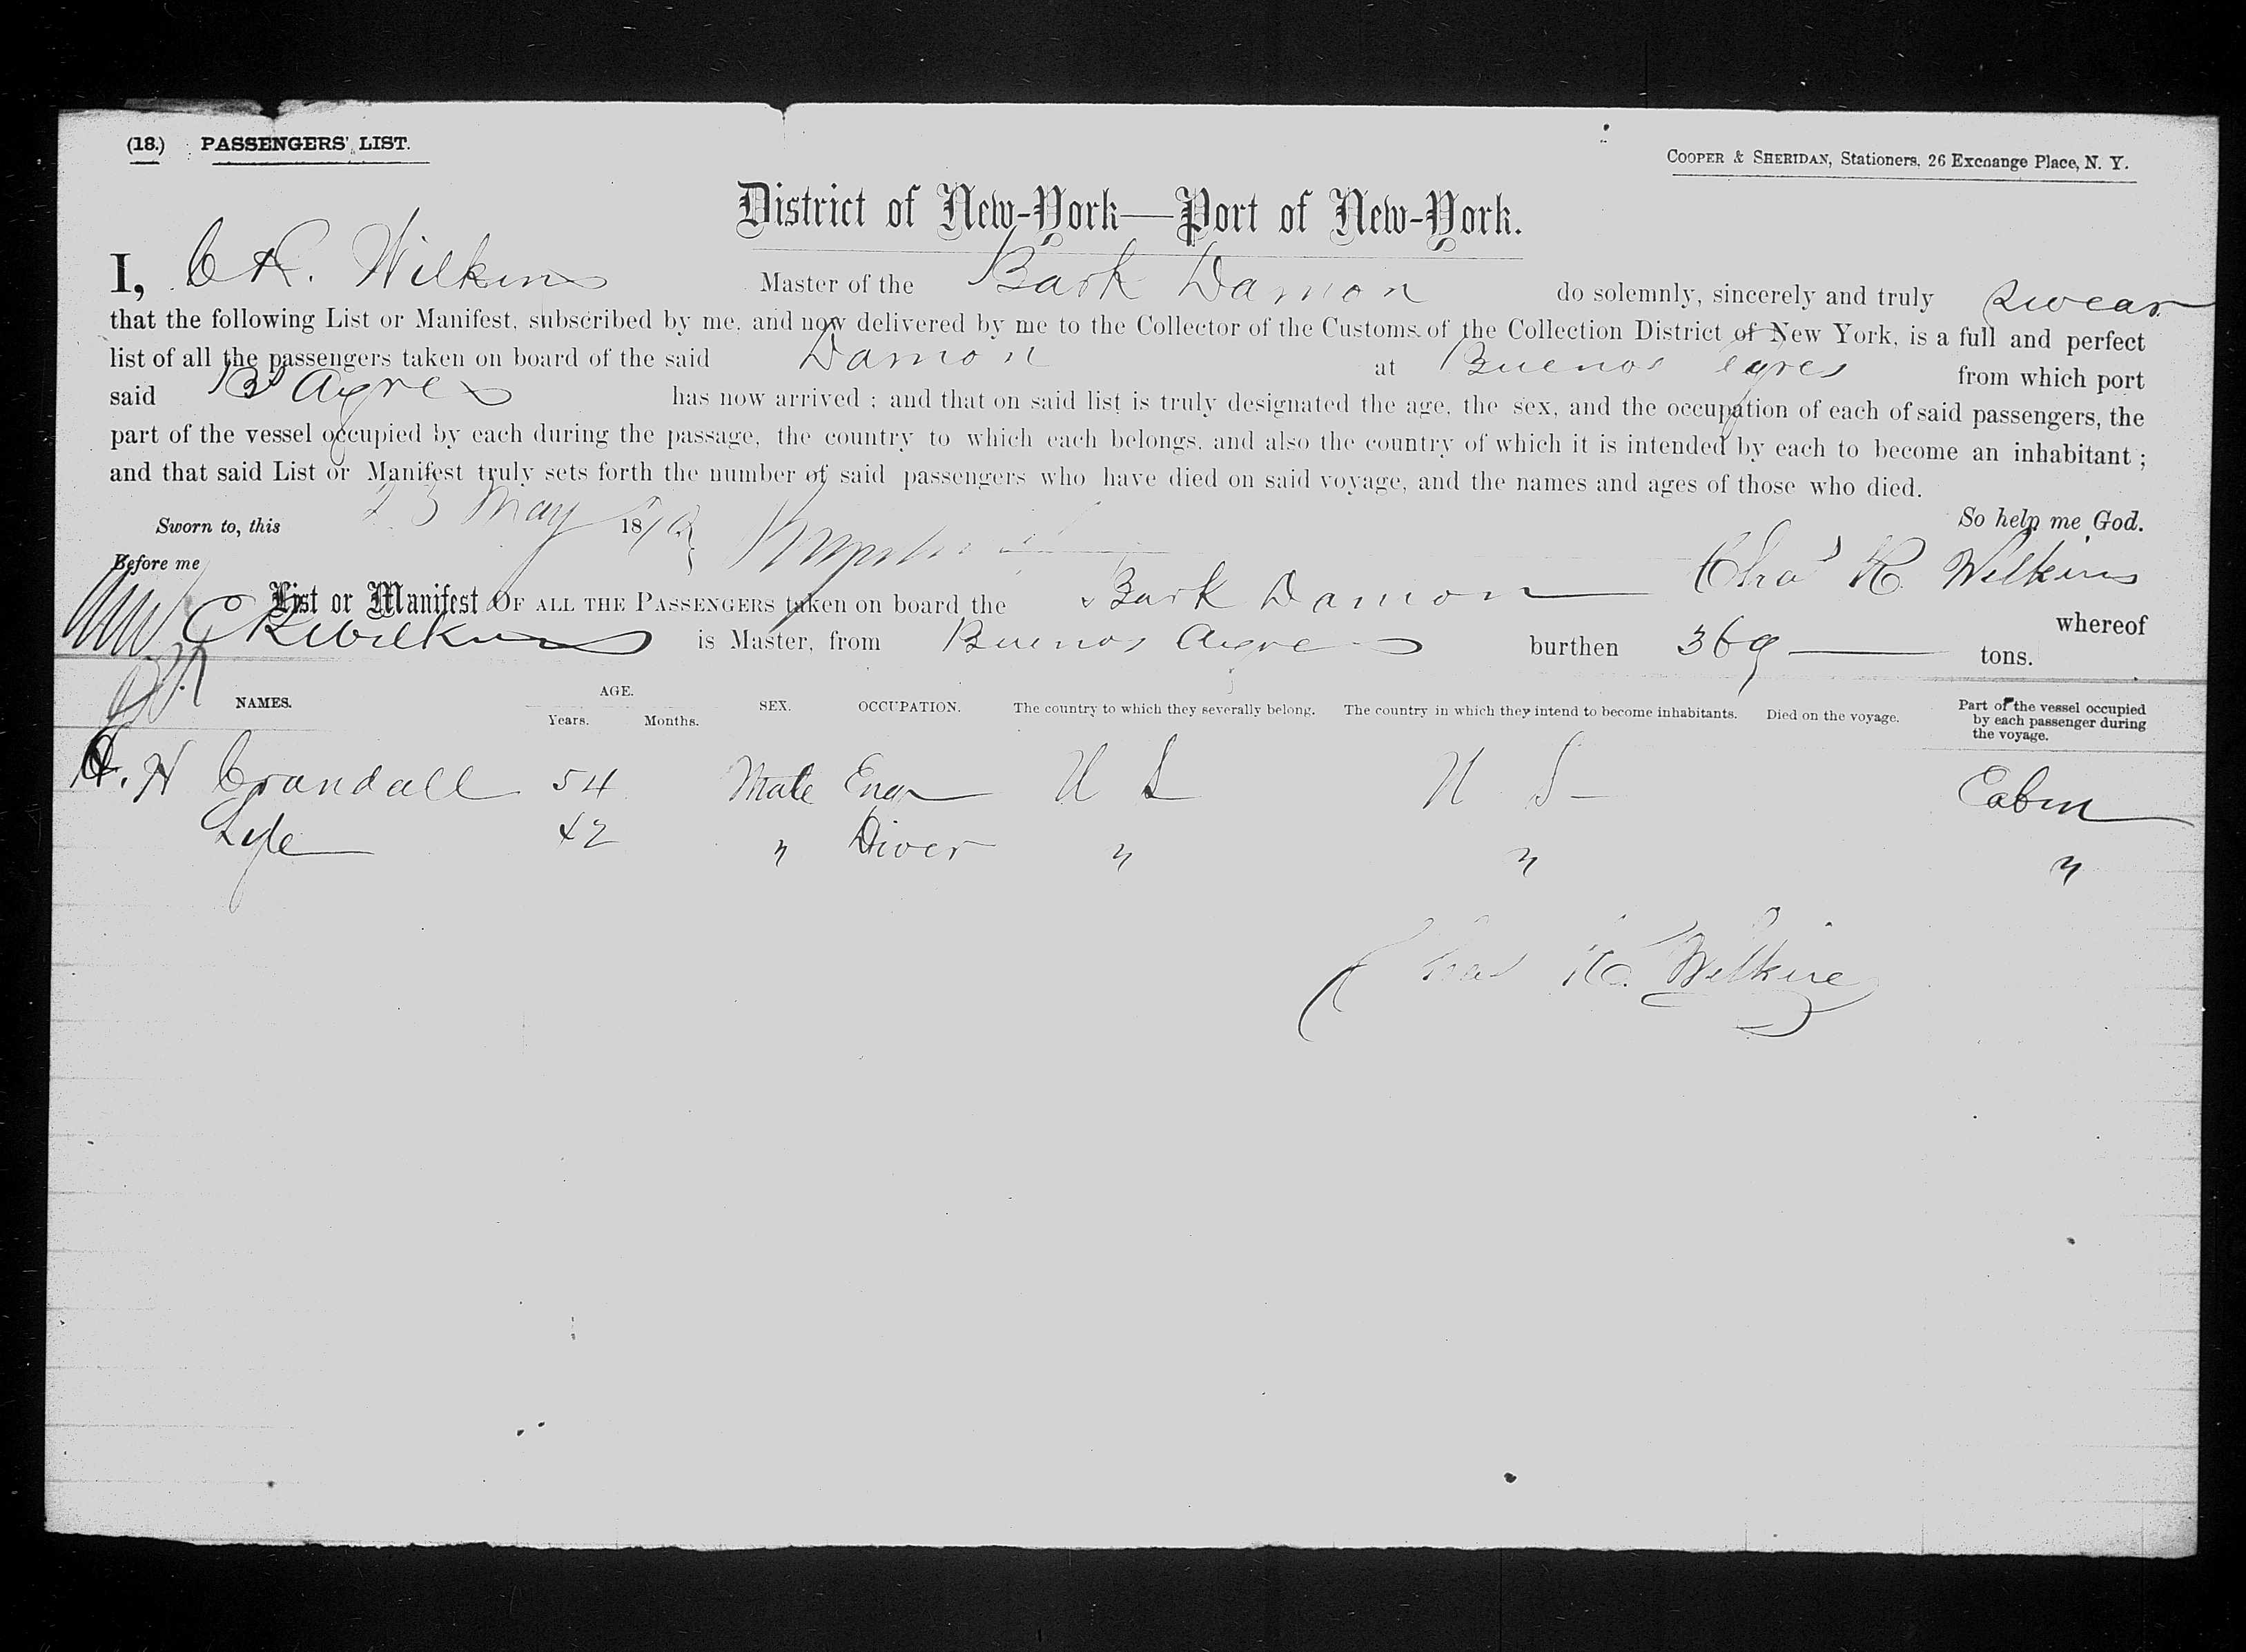 (18.) PASSENGERS' LIST.
COOPER & SHERIDAN, Stationers, 26 Exchange Place, N. Y.
District of New-York—Port of New-York.
I, C R. Wilkins Master of the Bark Damon do solemnly, sincerely and truly swear
that the following List or Manifest, subscribed by me, and now delivered by me to the Collector of the Customs of the Collection District of New York, is a full and perfect
list of all the passengers taken on board of the said Damon at Buenos Ayres from which port
said Bs Ayres has now arrived ; and that on said list is truly designated the age, the sex, and the occupation of each of said passengers, the
part of the vessel occupied by each during the passage, the country to which each belongs, and also the country of which it is intended by each to become an inhabitant ;
and that said List or Manifest truly sets forth the number of said passengers who have died on said voyage, and the names and ages of those who died.
So help me God.
Sworn to, this 23 May 187
Before me
Chas R Wilkins
List or Manifest OF ALL THE PASSENGERS taken on board the Bark Damon whereof
C R Wilkins is Master, from Buenos Ayres burthen 369 tons.
NAMES. AGE. Years. Months. SEX. OCCUPATION. The country to which they severally belong. The country in which they intend to become inhabitants. Died on the voyage. Part of the vessel occupied by each passenger during the voyage.
H Crandall 54 Male Engr U S U S Cabin
Lyle 42 " Diver " " "
Chas R. Wilkins